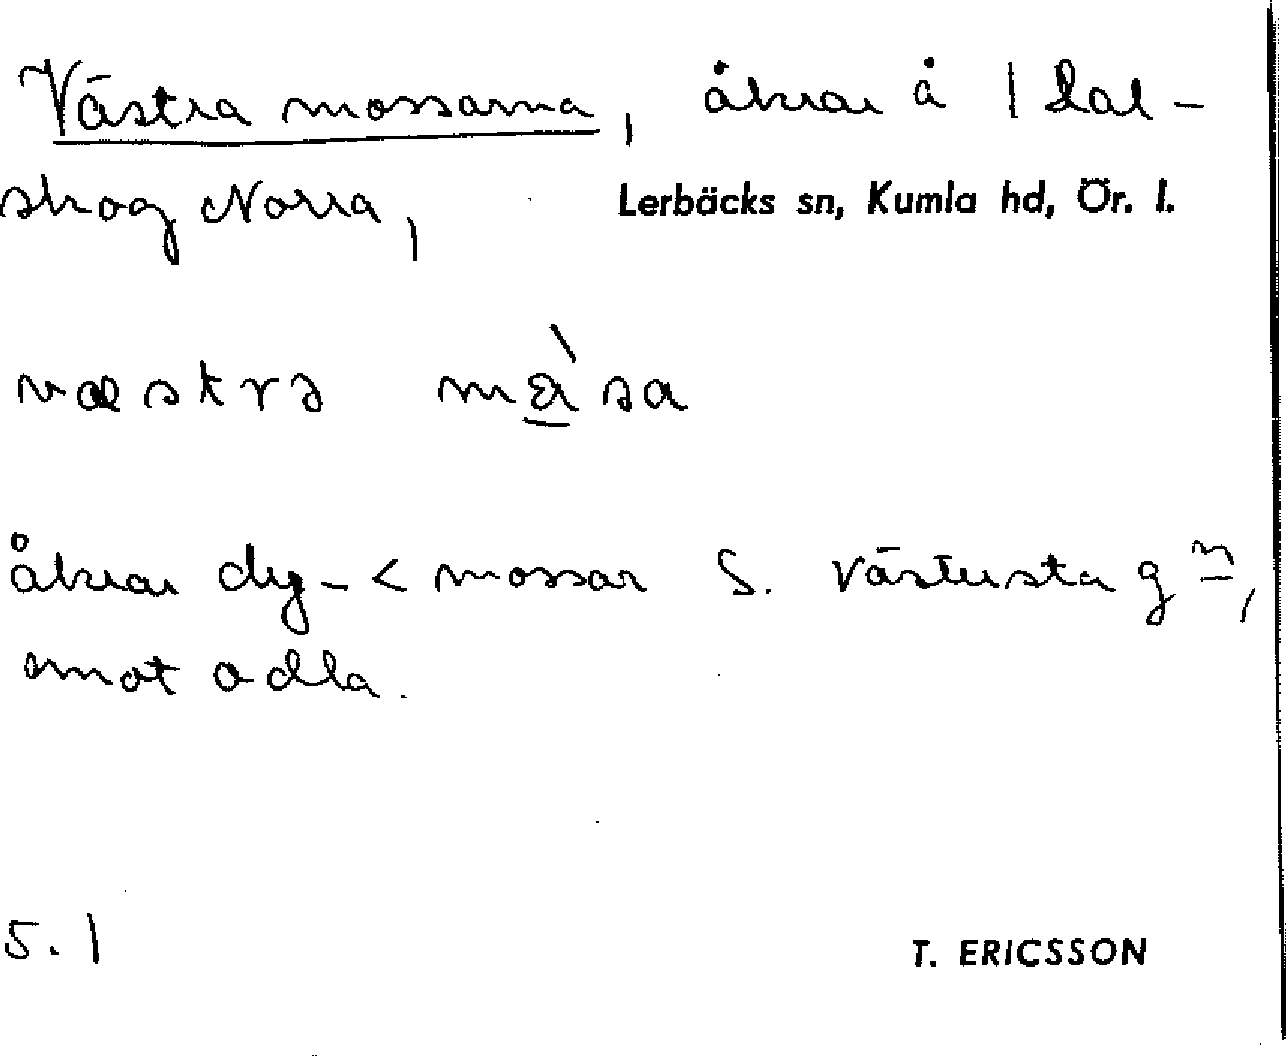 Västra mossarna, åkrar å 1 Dal-
skog Norra,
Lerbäcks sn, Kumla hd, Ör. l.
væstrə mɑ̀sa
åkrar dy- < mossar S. västersta g
mot odla.
5. 1
T. ERICSSON